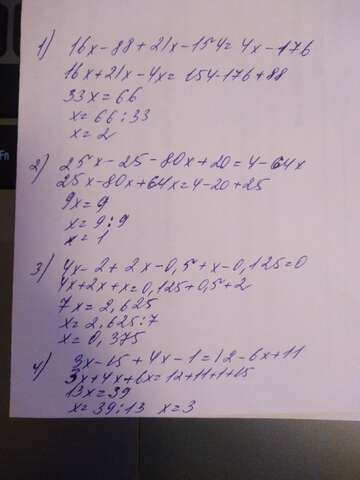 1) 16x-88+21x-154=4x-176
16x+21x-4x=154-176+88
33x=66
x=66:33
x=2
2) 25x-25-80x+20=4-64x
25x-80x+64x=4-20+25
9x=9
x=9:9
x=1
3) 4x-2+2x-0,5+x-0,125=0
4x+2x+x=0,125+0,5+2
7x=2,625
x=2,625:7
x=0,375
4) 3x-15+4x-1=12-6x+11
3x+4x+6x=12+11+1+15
13x=39
x=39:13 x=3